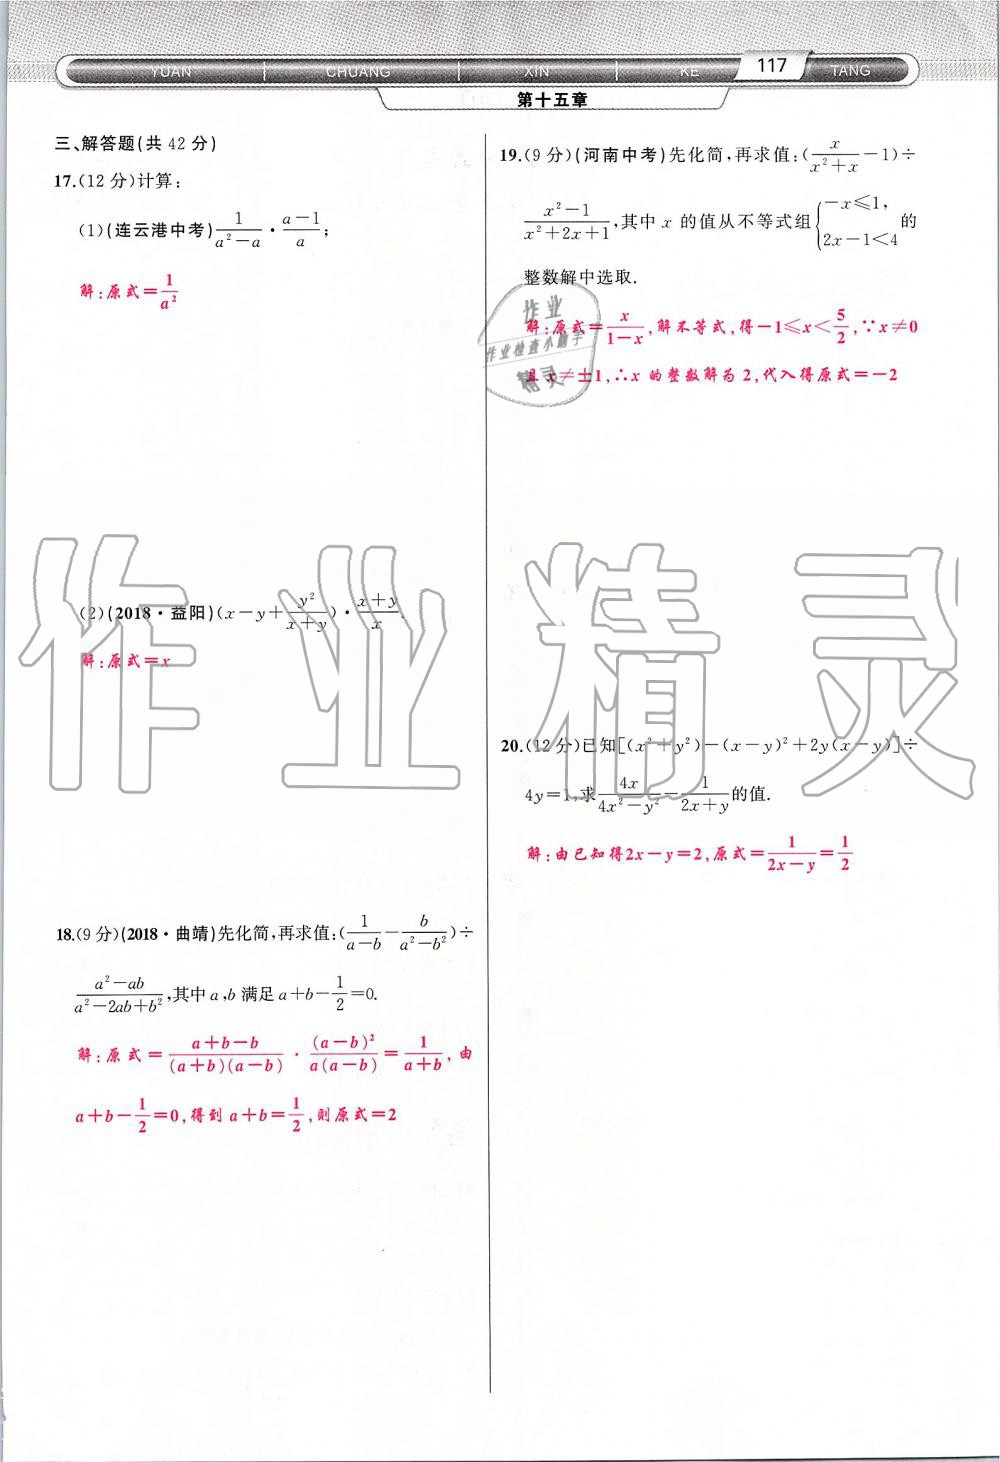 YUAN CHUANG XIN KE 117 TANG
第十五章
三、解答题(共 42 分)
17.(12 分)计算:
(1)(连云港中考) 1/(a²-a) · (a-1)/a;
解:原式=1/a²
(2)(2018·益阳)(x-y+y²/(x+y))·(x+y)/x.
解:原式=x
18.(9 分)(2018·曲靖)先化简,再求值:(1/(a-b)-b/(a²-b²))÷
(a²-ab)/(a²-2ab+b²),其中 a,b 满足 a+b-1/2=0.
解:原式=(a+b-b)/((a+b)(a-b)) · (a-b)²/(a(a-b))=1/(a+b),由
a+b-1/2=0,得到 a+b=1/2,则原式=2
19.(9 分)(河南中考)先化简,再求值:(x/(x²+x)-1)÷
(x²-1)/(x²+2x+1),其中 x 的值从不等式组{-x≤1, 2x-1<4 的
整数解中选取.
解:原式=x/(1-x),解不等式,得-1≤x<5/2,∵x≠0
且 x≠±1,∴x 的整数解为 2,代入得原式=-2
20.(12 分)已知[(x²+y²)-(x-y)²+2y(x-y)]÷
4y=1,求4x/(4x²-y²)-1/(2x+y)的值.
解:由已知得2x-y=2,原式=1/(2x-y)=1/2
作业
作业检查小助手
精灵
作业精灵